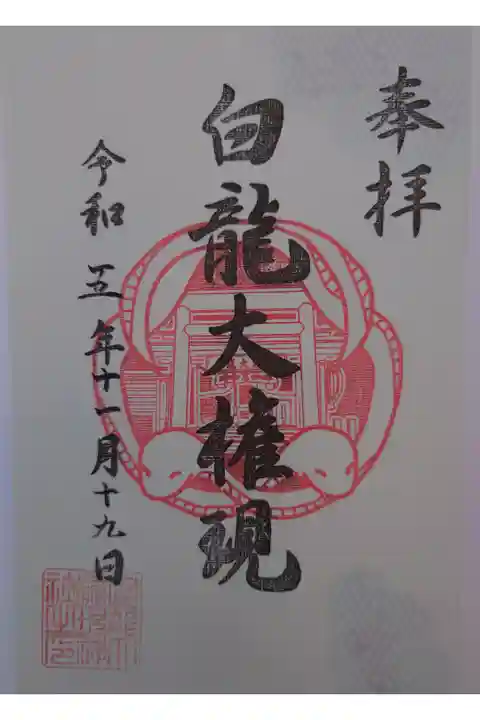 奉拝
白龍大権現
令和五年十一月十九日